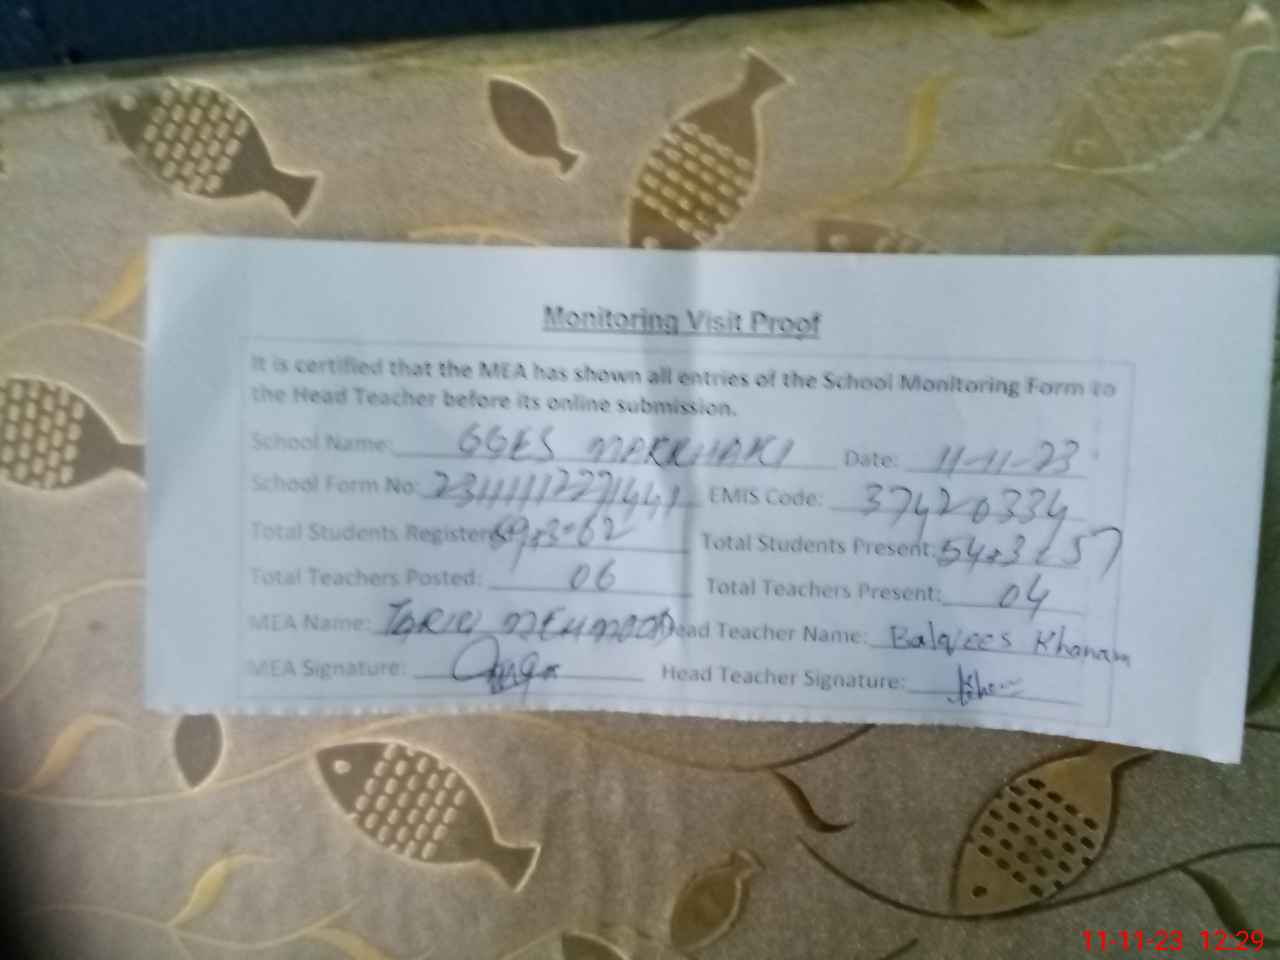 Monitoring Visit Proof
It is certified that the MEA has shown all entries of the School Monitoring Form to
the Head Teacher before its online submission.
School Name: GGES MARKHAKI Date: 11-11-23
School Form No: EMIS Code: 37420334
Total Students Register 59+3=62 Total Students Present: 54+3=57
Total Teachers Posted: 06 Total Teachers Present: 04
MEA Name: TARIQ MEHMOOD ead Teacher Name: Balqees Khanam
MEA Signature: Head Teacher Signature:
11-11-23 12:29